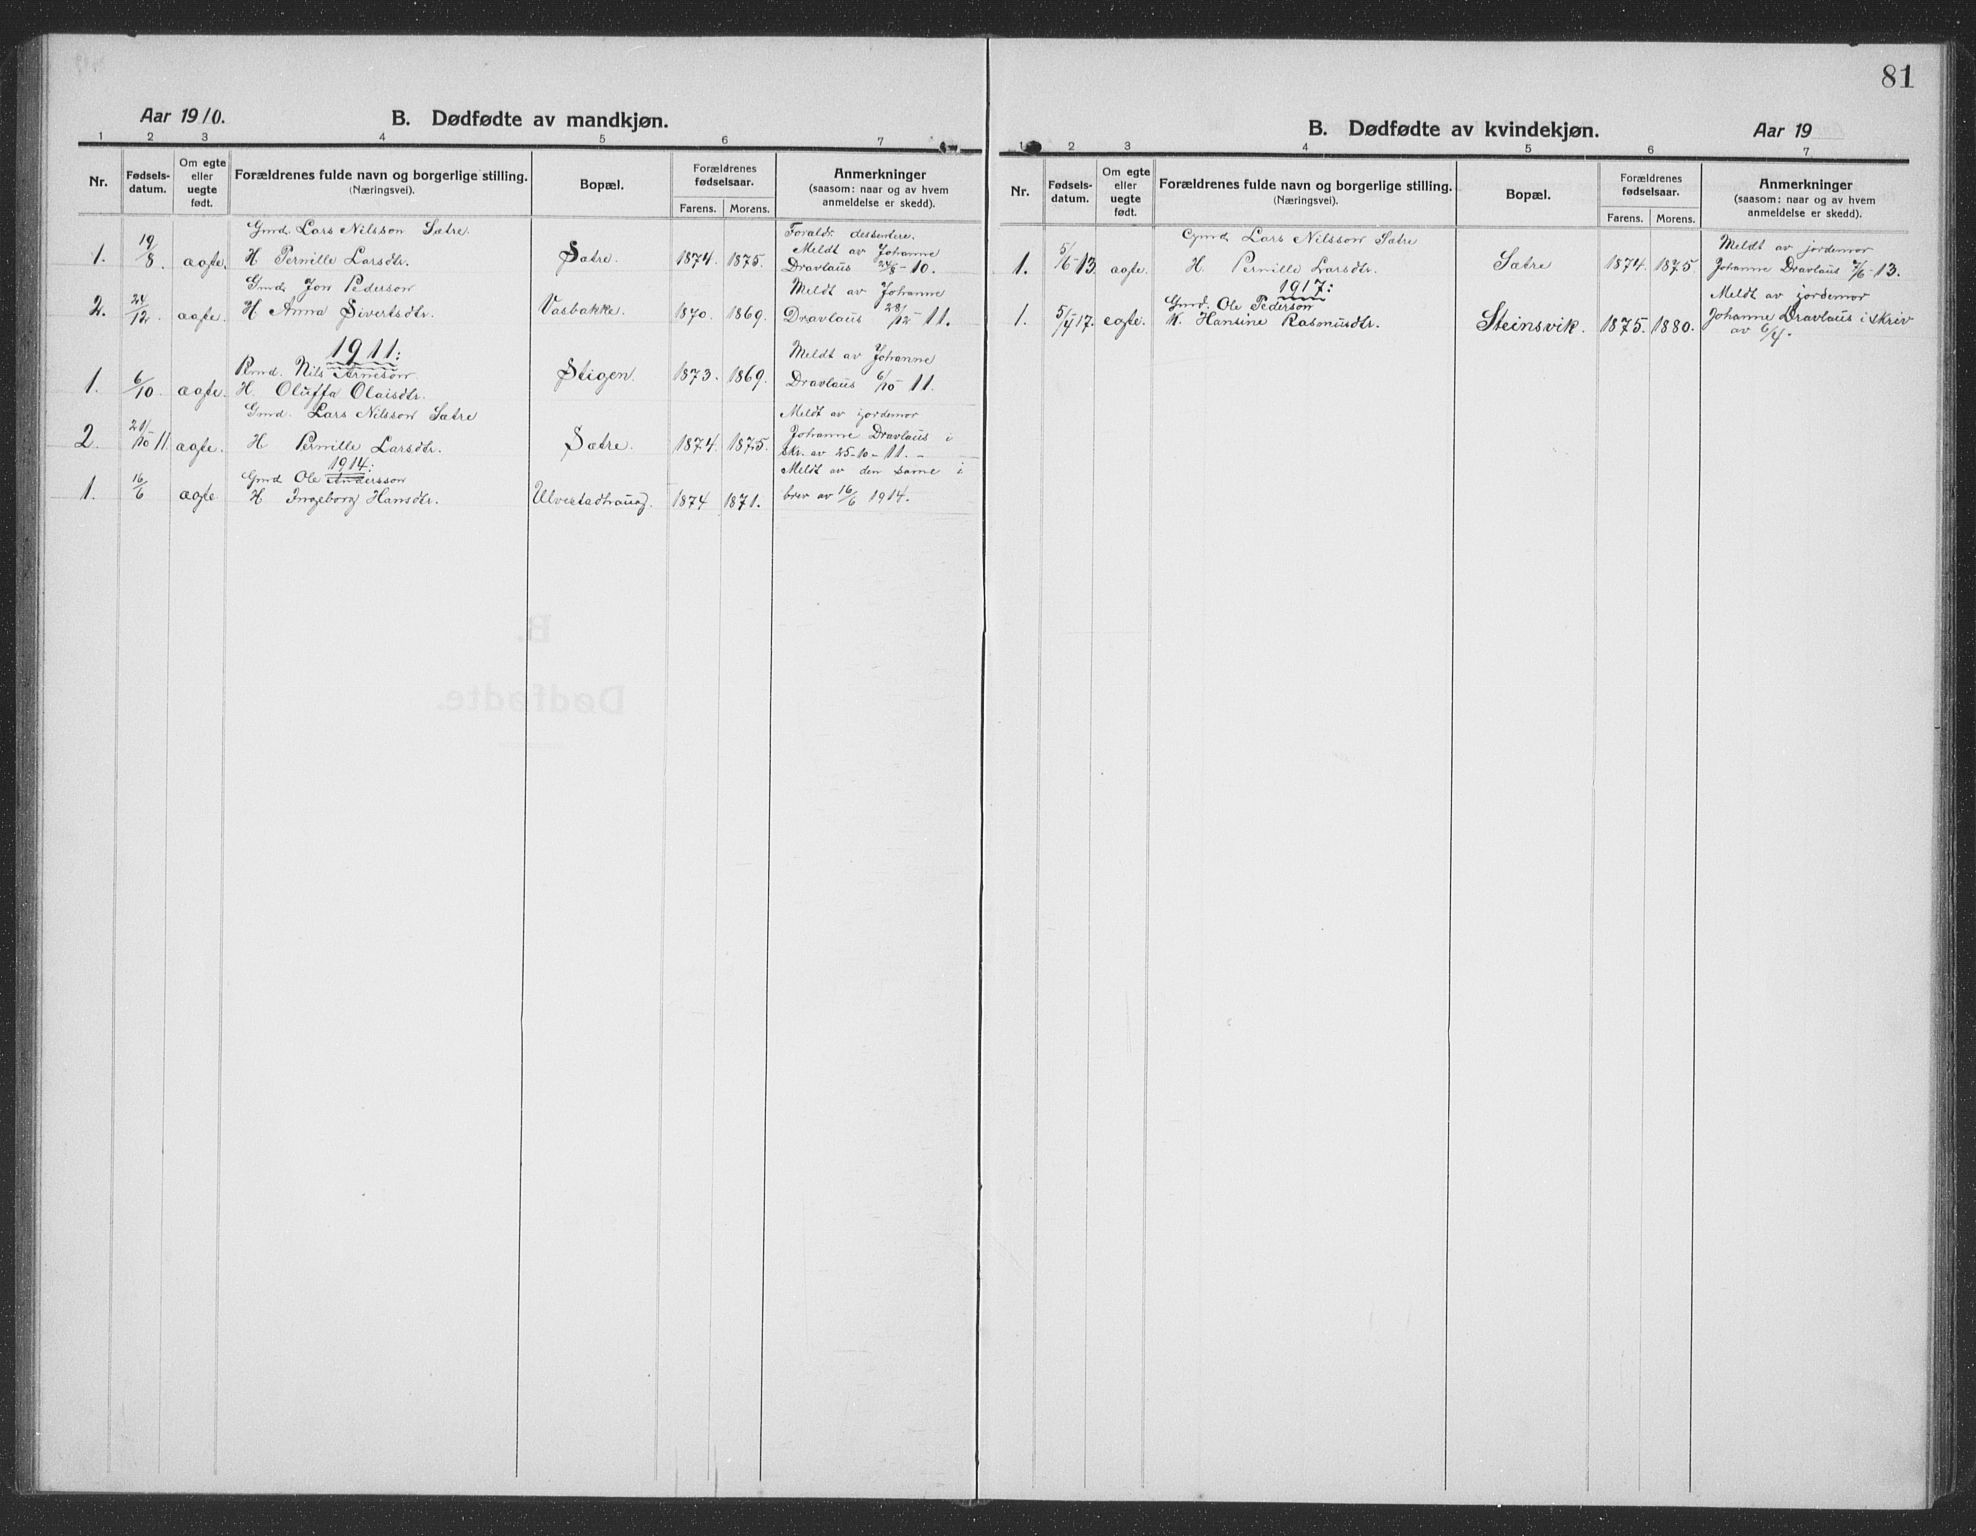 81
Aar 1910. B. Dødfødte av mandkjøn.
1 2 3 4 5 6 7
Nr. Fødsels-datum. Om egte eller uegte født. Forældrenes fulde navn og borgerlige stilling. (Næringsvei). Bopæl. Forældrenes fødselsaar. Farens. Morens. Anmerkninger (saasom: naar og av hvem anmeldelse er skedd).
Gmd. Lars Nilsson Sætre. Foraldr. dessentere.
1. 19/8. ægte. H Pernille Larsdtr. Sætre. 1874. 1875. Meldt av Johanne
Dravlaus 24/8-10.
Gmd. Jon Pederson Meldt av Johanne
2. 24/12 ægte. H Anna Sivertsdtr. Vasbakke. 1870. 1869. Dravlaus 28/12-11.
1911:
Rmd. Nils Arneson Meldt av Johanne
1. 6/10 ægte. H. Oluffa Olaisdtr. Stigen. 1873. 1869. Dravlaus 6/10-11.
Gmd. Lars Nilsson Sætre Meldt av jordemor
2. 21/10 11 ægte. H Pernille Larsdtr. Sætre. 1874. 1875. Johanne Dravlaus i
skr. av 25-10-11. -
1914:
Gmd Ole Andersson Meldt av den same i
1. 16/6 ægte H Ingeborg Hansdtr. Ulvestadtraug. 1874 1871. brev av 16/6 1914.
B. Dødfødte av kvindekjøn. Aar 19
1 2 3 4 5 6 7
Nr. Fødsels-datum. Om egte eller uegte født. Forældrenes fulde navn og borgerlige stilling. (Næringsvei). Bopæl. Forældrenes fødselsaar. Farens. Morens. Anmerkninger (saasom: naar og av hvem anmeldelse er skedd).
Gmd Lars Nilsson Sætre Meldt av jordemor
1. 5/6-13. ægte. H. Pernille Larsdtr. Sætre 1874 1875. Johanne Dravlaus 7/6-13.
1917:
Gmd. Ole Pederson Meldt av jordemor
1. 5/4 17. egte. K. Hansine Rasmusdtr. Steinsvik. 1875. 1880. Johanne Dravlaus i skriv
av 6/4.